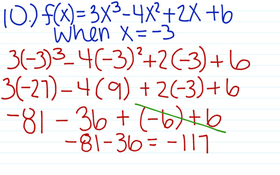 10.) f(x)=3x³-4x²+2x+6
when x=-3
3(-3)³-4(-3)²+2(-3)+6
3(-27)-4(9)+2(-3)+6
-81-36+(-6)+6
-81-36=-117